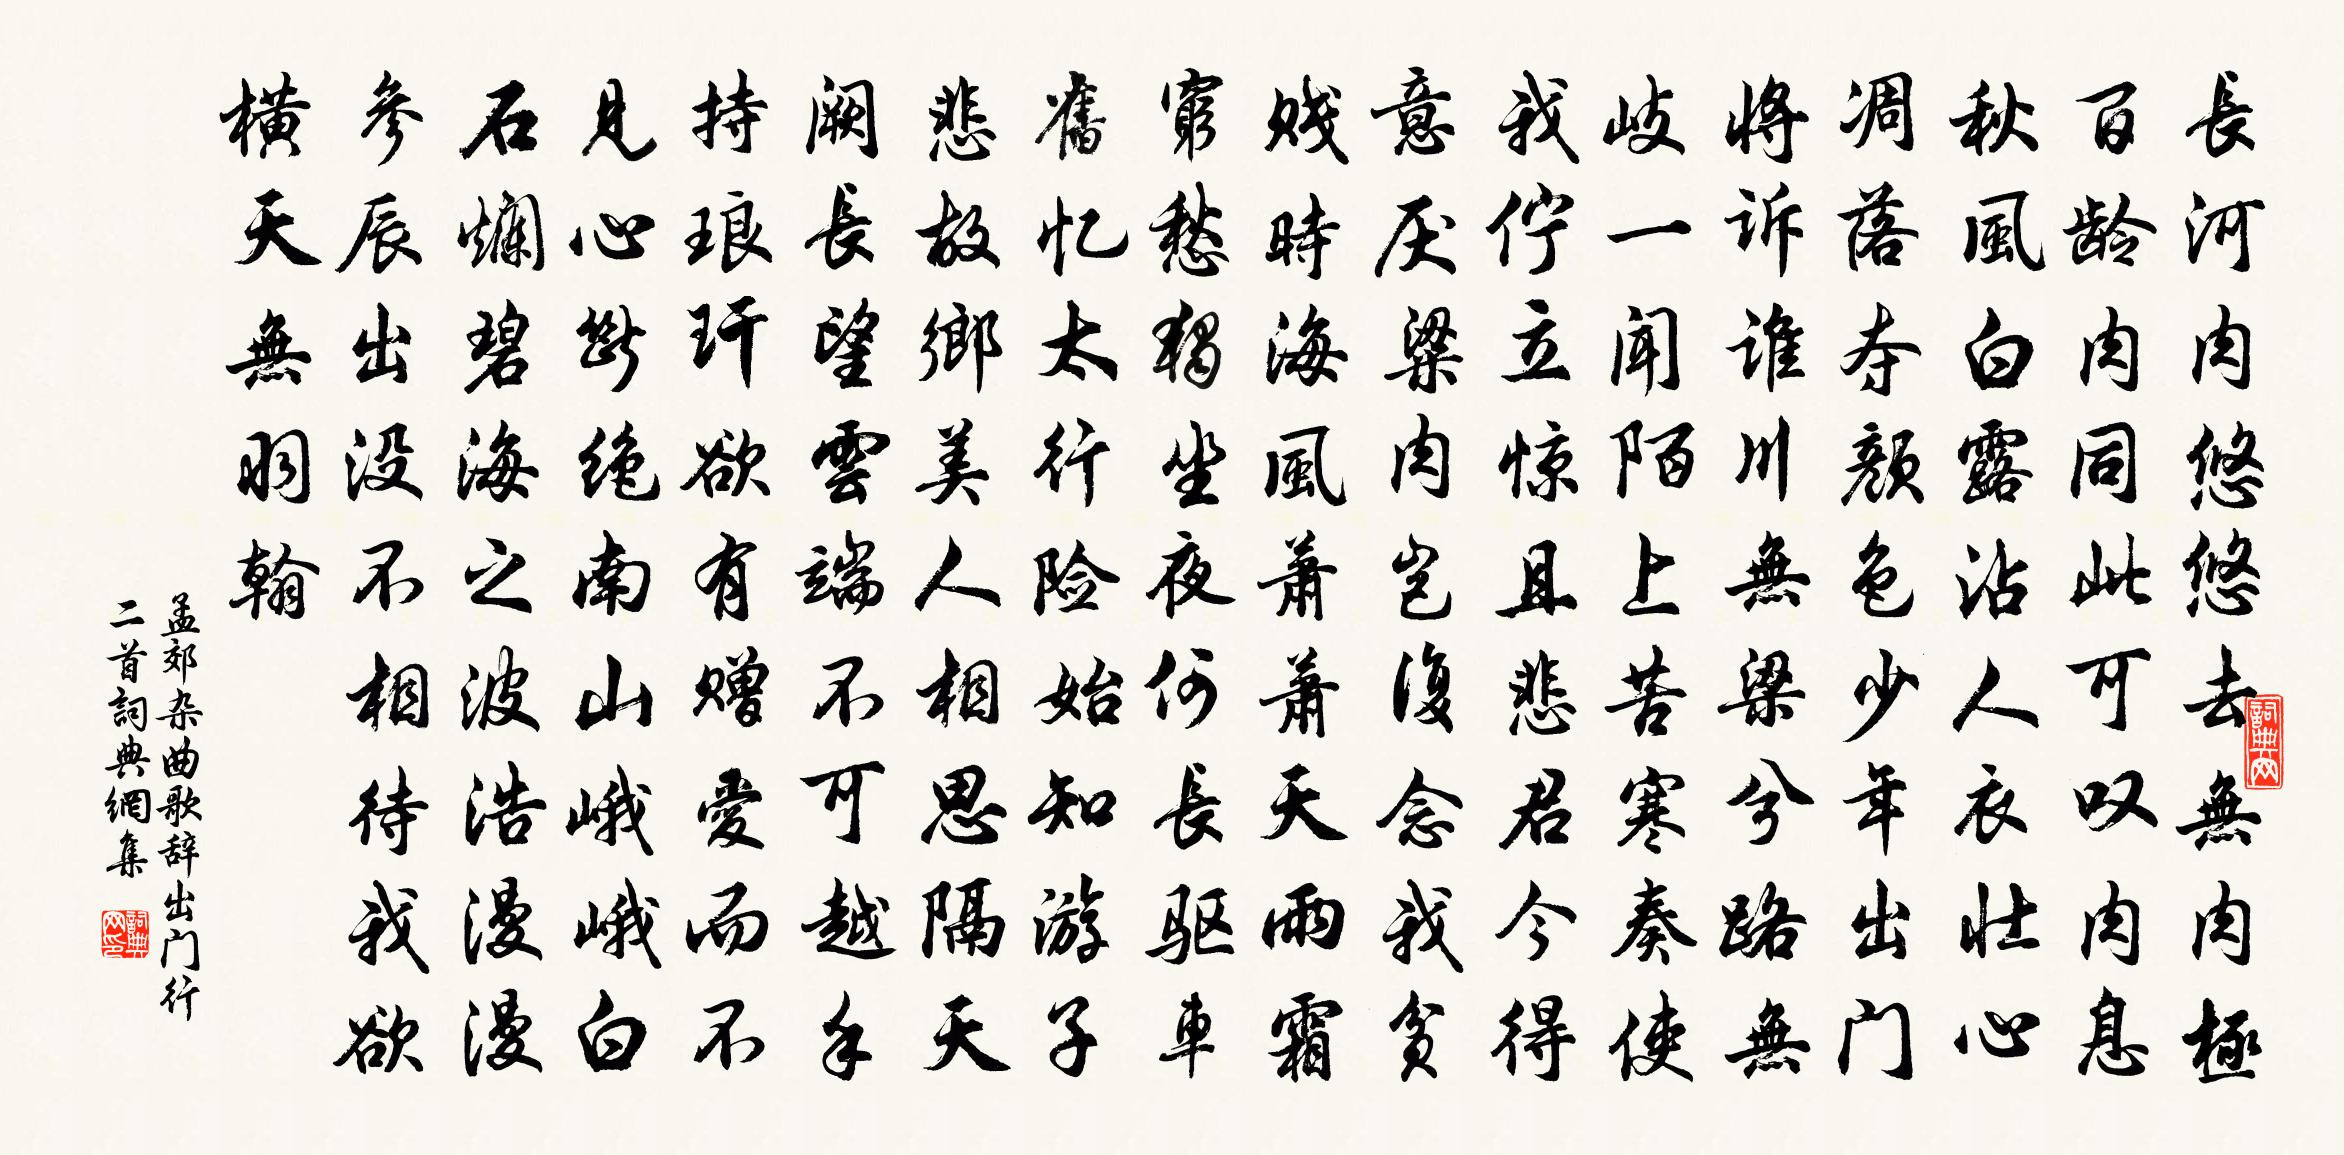 長河肉悠悠去無肉極
百龄肉同此可叹肉息
秋風白露沾人衣壮心
凋落夺颜色少年出门
将诉谁川無梁兮路無
岐一闻陌上苦寒奏使
我佇立惊且悲君今得
意厌粱肉岂復念我贫
贱時海風萧萧天雨霜
窮愁獨坐夜何長驱車
舊忆太行险始知游子
悲故鄉美人相思隔天
阙長望雲端不可越手
持琅玕欲有赠愛而不
見心斷绝南山峨峨白
石爛碧海之波浩漫漫
參辰出没不相待我欲
横天無羽翰
孟郊杂曲歌辞出门行
二首詞典網集
詞典网
詞典网印